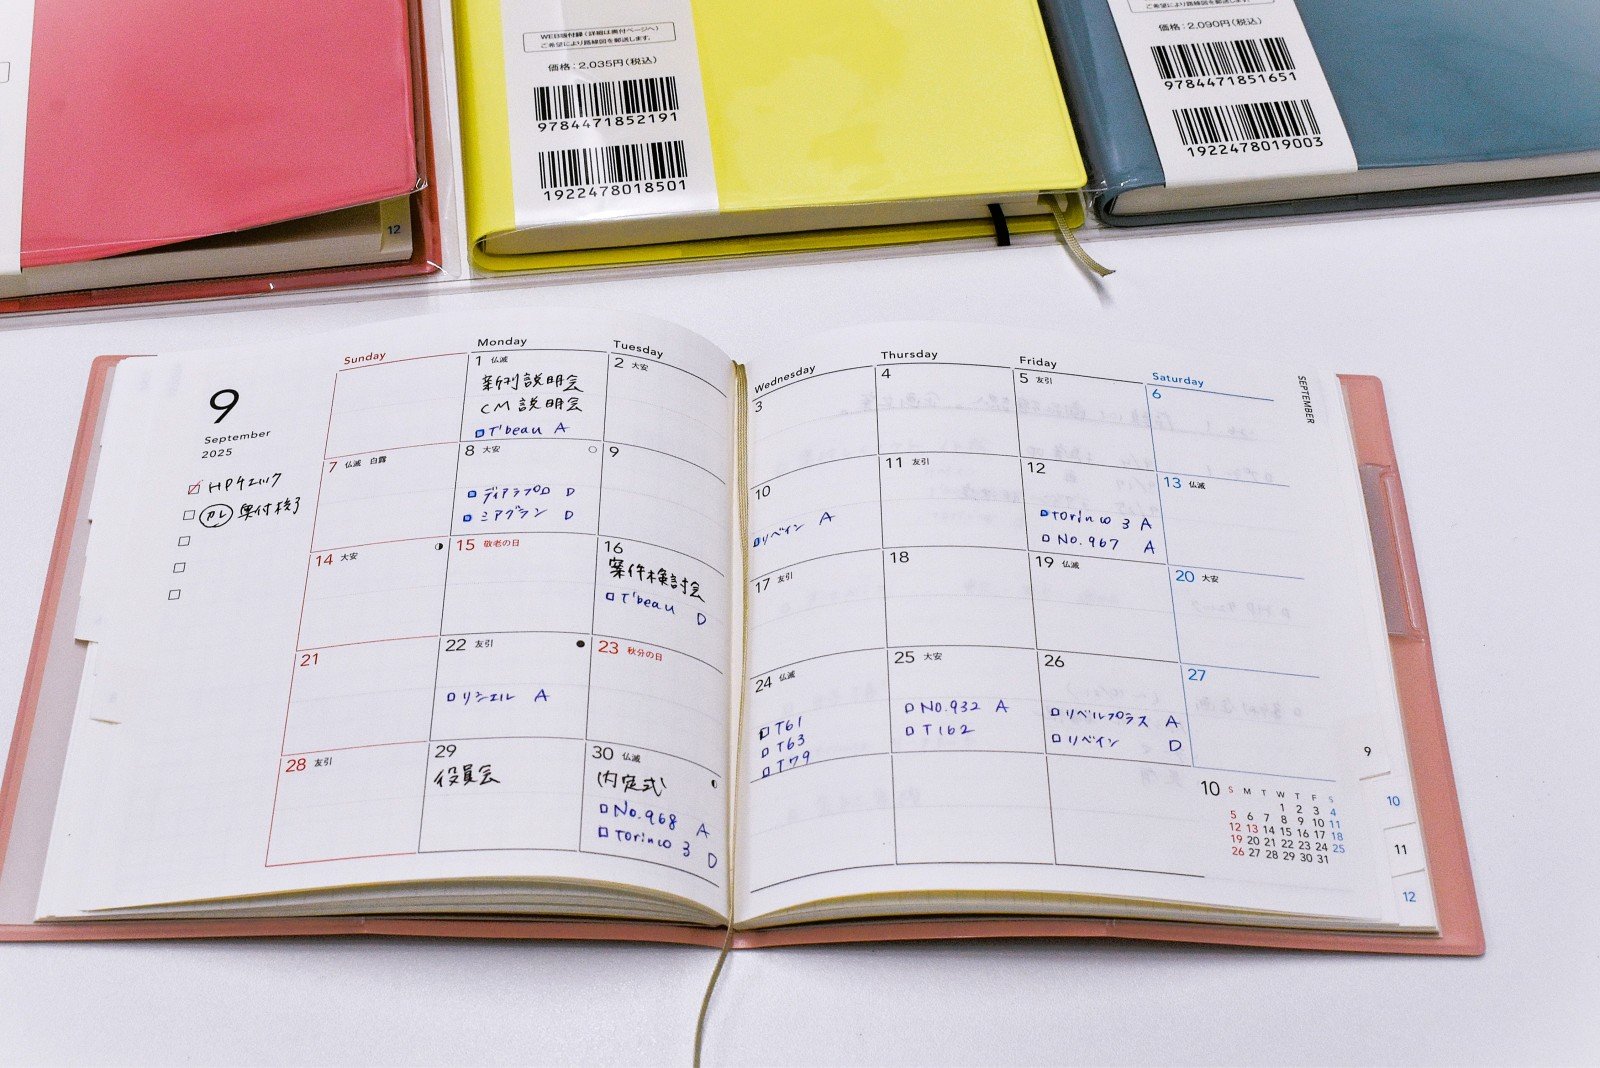 WEB版付録(詳細は奥付ページへ)
ご希望により路線図を郵送します。
価格:2,035円(税込)
9784471852191
1922478018501
価格:2,090円(税込)
9784471851651
1922478019003
12
9
September
2025
HPチェック
カレ 奥付校了
Sunday
Monday
Tuesday
Wednesday
Thursday
Friday
Saturday
SEPTEMBER
1 仏滅
新刊説明会
CM説明会
T'beau A
2 大安
3
4
5 友引
6
7 仏滅 白露
8 大安
ディアラプロ D
ミアグラン D
9
10
リベイン A
11 友引
12
Torinco 3 A
No.967 A
13 仏滅
14 大安
15 敬老の日
16
案件検討会
T'beau D
17 友引
18
19 仏滅
20 大安
21
22 友引
リシェル A
23 秋分の日
24 仏滅
T61
T63
T79
25 大安
No.932 A
T162
26
リベルプラス A
リベイン D
27
28 友引
29
役員会
30 仏滅
内定式
No.968 A
Torinco 3 D
10
S M T W T F S
1 2 3 4
5 6 7 8 9 10 11
12 13 14 15 16 17 18
19 20 21 22 23 24 25
26 27 28 29 30 31
9
10
11
12